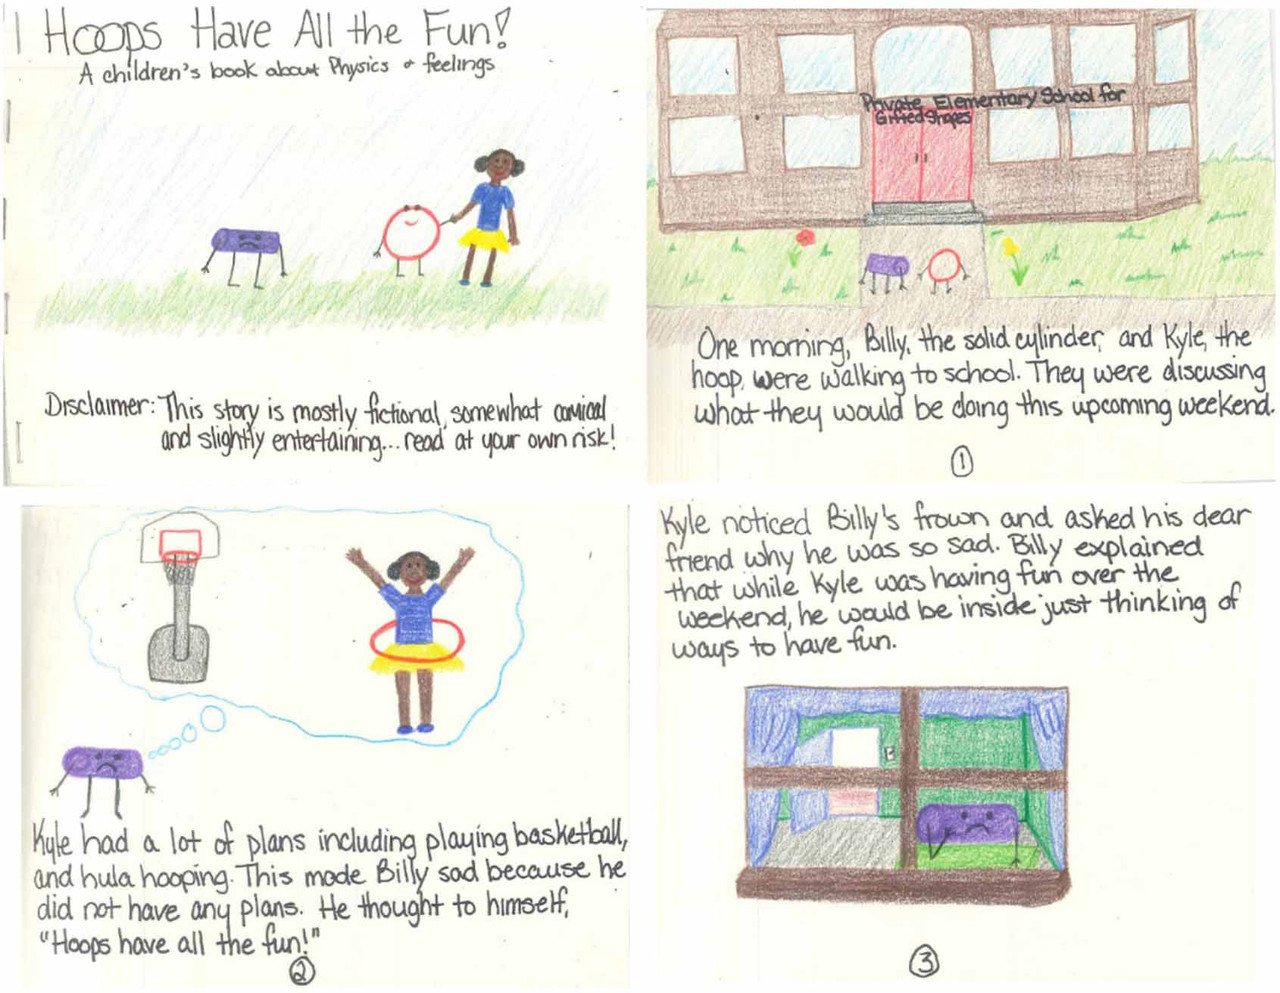 Hoops Have All the Fun!
A children's book about Physics & feelings
Disclaimer: This story is mostly fictional, somewhat comical
and slightly entertaining... read at your own risk!
Private Elementary School for
Gifted Shapes
One morning, Billy, the solid cylinder, and Kyle, the
hoop, were walking to school. They were discussing
what they would be doing this upcoming weekend.
1
Kyle had a lot of plans including playing basketball,
and hula hooping. This made Billy sad because he
did not have any plans. He thought to himself,
"Hoops have all the fun!"
2
Kyle noticed Billy's frown and asked his dear
friend why he was so sad. Billy explained
that while Kyle was having fun over the
weekend, he would be inside just thinking of
ways to have fun.
3